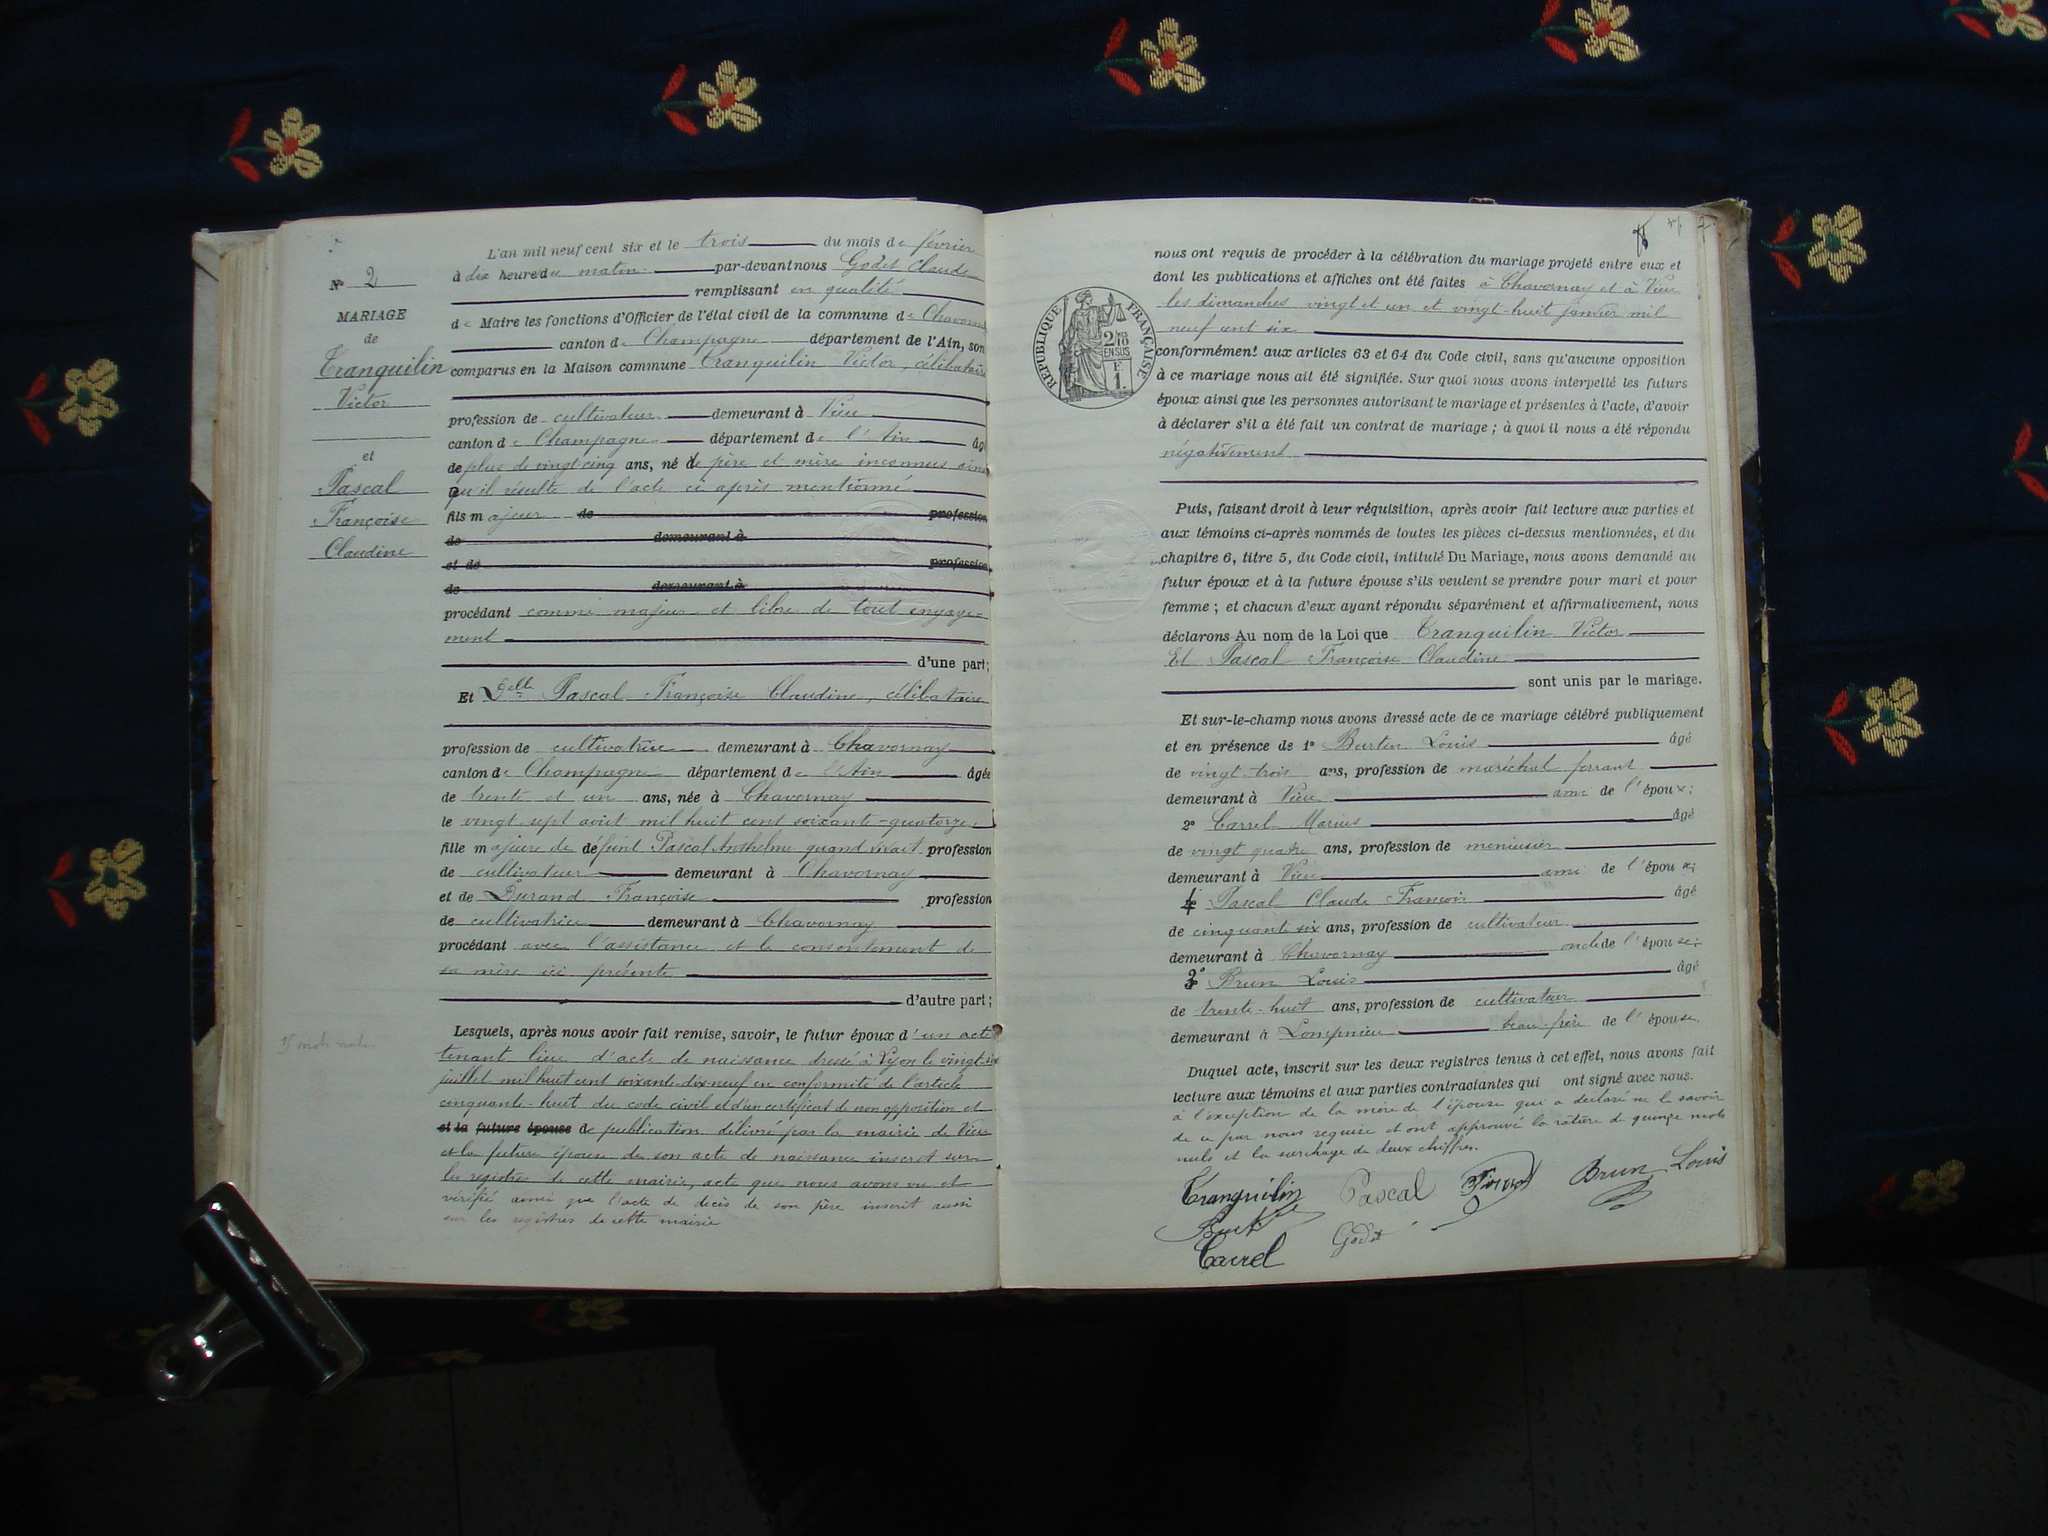 L'an mil neuf cent six et le trois du mois de février
à dix heure du matin par-devant nous Godet Claude
N° 2
remplissant en qualité
MARIAGE
de Maire les fonctions d'Officier de l'état civil de la commune de Chavornay
de
canton de Champagne département de l'Ain, son
Tranquilin
comparus en la Maison commune Tranquilin Victor, célibataire
Victor
profession de cultivateur demeurant à Vieu
canton de Champagne département de l'Ain âgé
et
de plus de vingt cinq ans, né de père et mère inconnus ainsi
Pascal
qu'il résulte de l'acte ci après mentionné
Françoise
fils majeur de profession
Claudine
de demeurant à
et de profession
de demeurant à
procédant comme majeur et libre de tout engage-
ment
d'une part;
Et Delle Pascal Françoise Claudine, célibataire
profession de cultivatrice demeurant à Chavornay
canton de Champagne département de l'Ain âgée
de trente et un ans, née à Chavornay
le vingt sept août mil huit cent soixante-quatorze
fille majeure de défunt Pascal Anthelme quand vivait profession
de cultivateur demeurant à Chavornay
et de Durand Françoise profession
de cultivatrice demeurant à Chavornay
procédant avec l'assistance et le consentement de
sa mère ici présente
d'autre part;
Lesquels, après nous avoir fait remise, savoir, le futur époux d'un acte
15 mots nuls
tenant lieu d'acte de naissance dressé à Lyon le vingt-six
juillet mil huit cent soixante-dix-neuf en conformité de l'article
cinquante-huit du code civil et d'un certificat de non opposition et
et la future épouse de publication délivré par la mairie de Vieu
et la future épouse de son acte de naissance inscrit sur
les registres de cette mairie, acte que nous avons vu et
vérifié ainsi que l'acte de décès de son père inscrit aussi
sur les registres de cette mairie
2
nous ont requis de procéder à la célébration du mariage projeté entre eux et
dont les publications et affiches ont été faites à Chavornay et à Vieu
les dimanches vingt et un et vingt-huit janvier mil
neuf cent six
RÉPUBLIQUE FRANÇAISE
2/10
EN SUS
F
1.
conformément aux articles 63 et 64 du Code civil, sans qu'aucune opposition
à ce mariage nous ait été signifiée. Sur quoi nous avons interpellé les futurs
époux ainsi que les personnes autorisant le mariage et présentes à l'acte, d'avoir
à déclarer s'il a été fait un contrat de mariage; à quoi il nous a été répondu
négativement
Puis, faisant droit à leur réquisition, après avoir fait lecture aux parties et
aux témoins ci-après nommés de toutes les pièces ci-dessus mentionnées, et du
chapitre 6, titre 5, du Code civil, intitulé Du Mariage, nous avons demandé au
futur époux et à la future épouse s'ils veulent se prendre pour mari et pour
femme; et chacun d'eux ayant répondu séparément et affirmativement, nous
déclarons Au nom de la Loi que Tranquilin Victor
Et Pascal Françoise Claudine
sont unis par le mariage.
Et sur-le-champ nous avons dressé acte de ce mariage célébré publiquement
et en présence de 1° Burtin Louis âgé
de vingt trois ans, profession de maréchal ferrant
demeurant à Vieu ami de l'époux;
2° Carrel Marius âgé
de vingt quatre ans, profession de menuisier
demeurant à Vieu ami de l'époux;
4° Pascal Claude François âgé
de cinquante six ans, profession de cultivateur
demeurant à Chavornay oncle de l'épouse;
3° Brun Louis âgé
de trente-huit ans, profession de cultivateur
demeurant à Lompnieu beau-frère de l'épouse.
Duquel acte, inscrit sur les deux registres tenus à cet effet, nous avons fait
lecture aux témoins et aux parties contractantes qui ont signé avec nous.
à l'exception de la mère de l'épouse qui a déclaré ne le savoir
de ce par nous requise et ont approuvé la rature de quinze mots
nuls et la surcharge de deux chiffres.
Tranquilin Pascal Brun Louis
Godet
Carrel